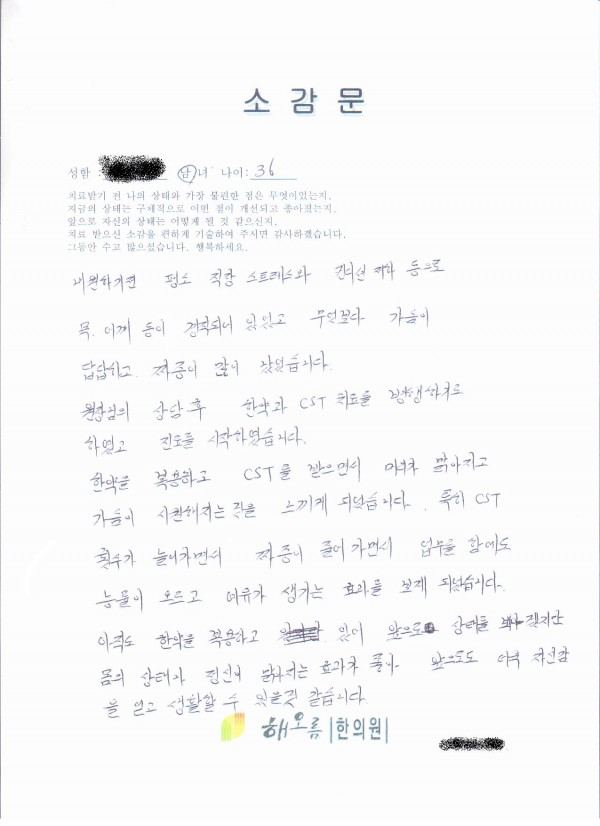 소 감 문
성함 : 남/녀 나이: 36
치료받기 전 나의 상태와 가장 불편한 점은 무엇이었는지,
지금의 상태는 구체적으로 어떤 점이 개선되고 좋아졌는지,
앞으로 자신의 상태는 어떻게 될 것 같으신지,
치료 받으신 소감을 편하게 기술하여 주시면 감사하겠습니다.
그동안 수고 많으셨습니다. 행복하세요.
내원하기전 평소 직장 스트레스와 컨디션 저하 등으로
목, 어깨 등이 경직되어 있었고 무엇보다 가슴이
답답하고, 짜증이 많이 났었습니다.
원장님의 상담 후 한약과 CST 치료를 병행하기로
하였고 진료를 시작하였습니다.
한약을 복용하고 CST를 받으면서 머리가 맑아지고
가슴이 시원해지는 것을 느끼게 되었습니다. 특히 CST
횟수가 늘어가면서 짜증이 줄어가면서 업무를 함에도
능률이 오르고 여유가 생기는 효과를 보게 되었습니다.
아직도 한약을 복용하고 있어 앞으로 상태를 봐야 겠지만
몸의 상태가 정신이 맑아지는 효과가 좋아 앞으로도 더욱 자신감
을 얻고 생활할 수 있을것 같습니다.
해오름 |한의원|